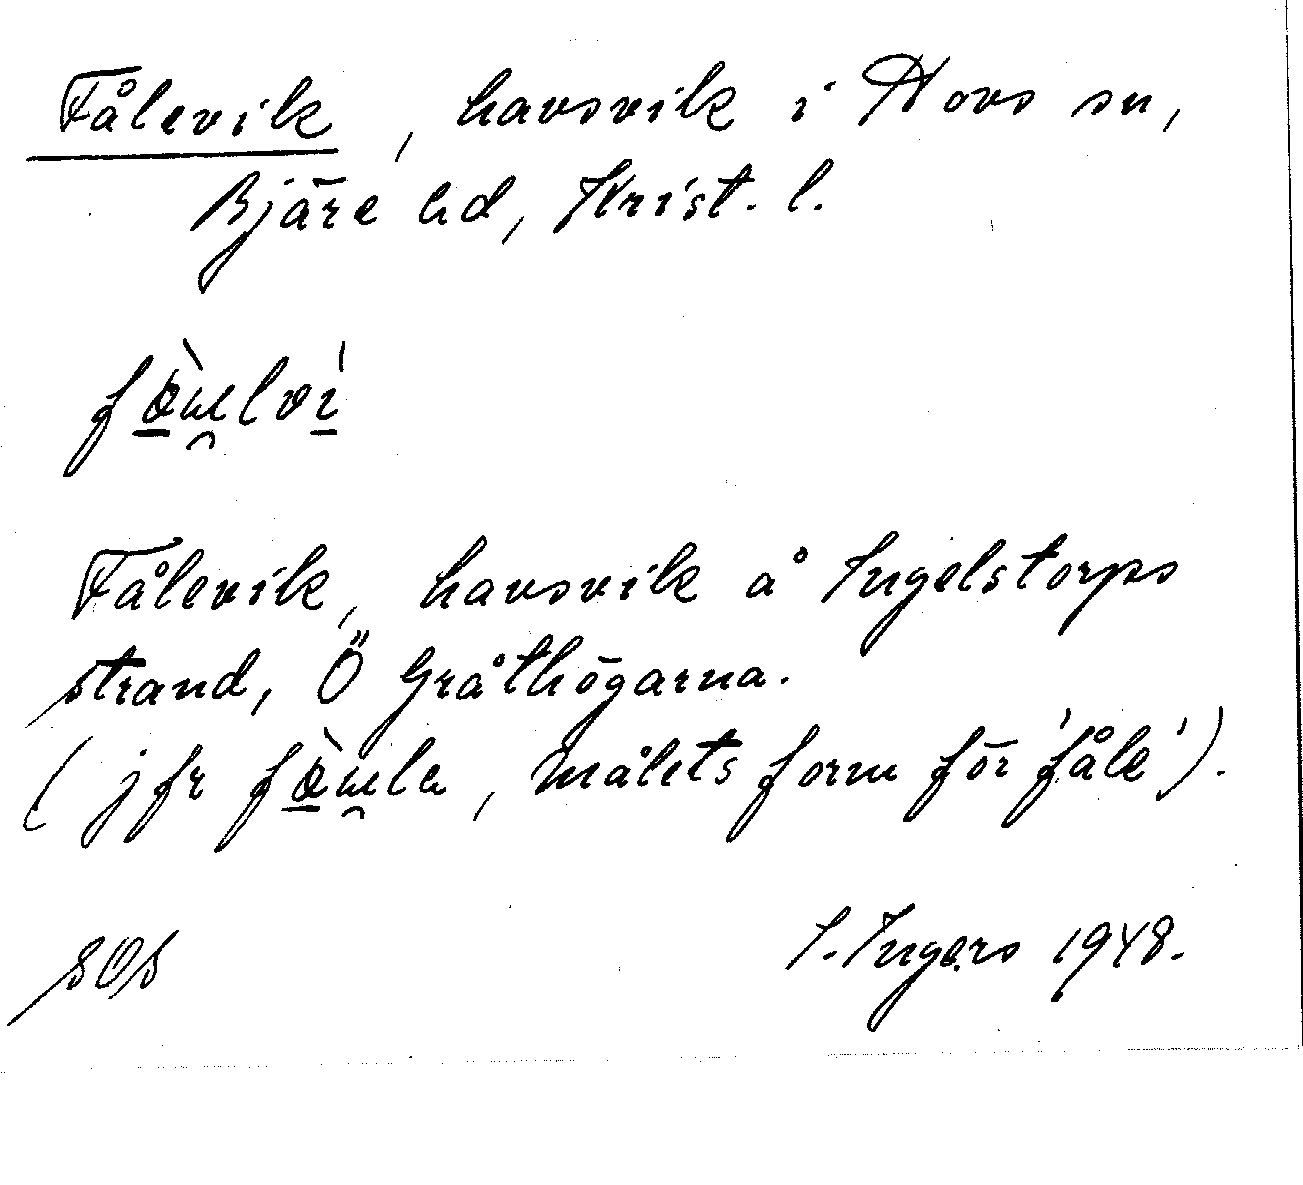 Fålevik, havsvik i Hovs sn,
Bjäre hd, Krist. l.
Fålevik, havsvik å Ingelstorps
strand, Ö Gråthögarna.
(jfr , målets form för 'fåle').
SOS
I. Ingers 1948.